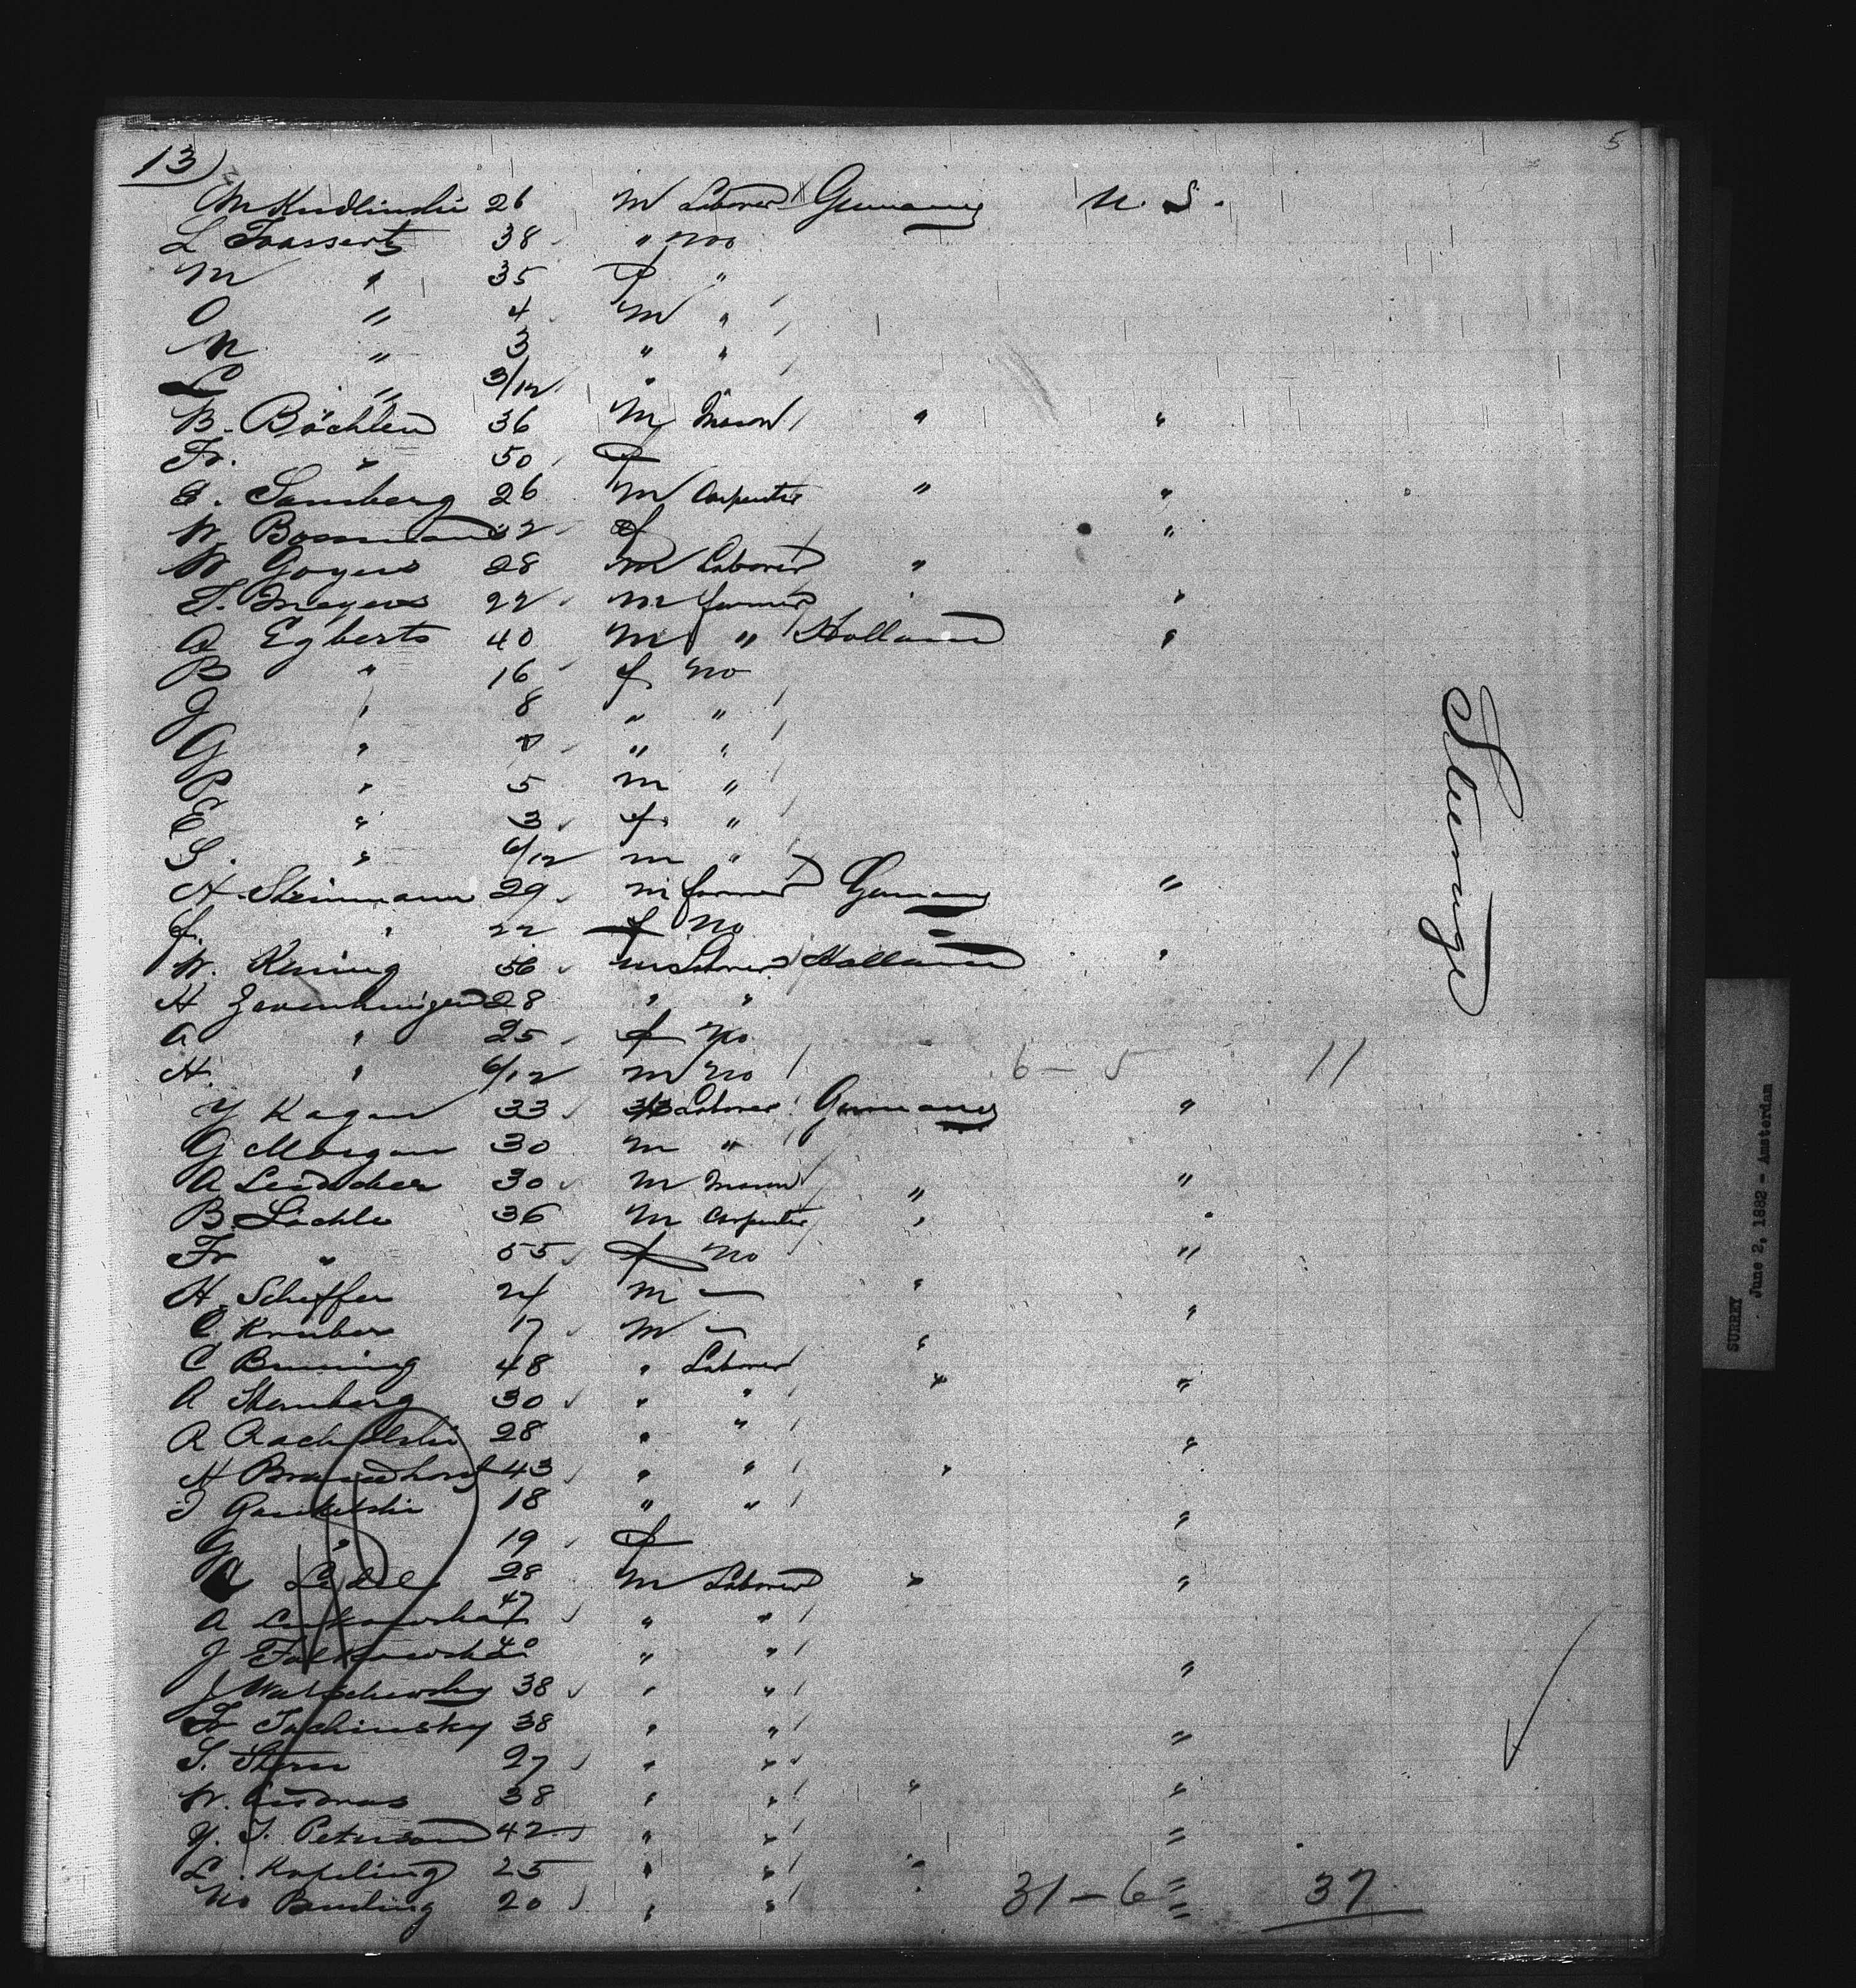 5
13)
M Kudlinski 26 m Laborer Germany U. S.
L Trassert 38 " no
M " 35 f "
O " 4 m "
N " 3 " "
" 3/12 "
B. Böchlen 36 m Mason " "
Fr. " 50 f
E. Samberg 26 m Carpenter " "
W. Bosman 32 f "
W Goyers 28 m Laborer "
T. Meyers 22 m farmer " "
A Egberts 40 m " Holland "
B " 16 f no
J " 8 " "
G " 7 " "
P " 5 m "
E " 3 f "
S. " 6/12 m "
H. Steinmann 29 m farmer Germany "
f. " 22 f no
W. Kruing 56 m Laborer Holland "
H Zevenhuizen 28 " "
A " 25 f no
H. " 6/12 m no 6 - 5 11
Y Kagan 33 Laborer Germany "
G Morgan 30 m "
A Leidcher 30 m Mason " "
B. Lächle 36 m Carpenter " "
Fr " 55 f no "
H. Scheffer 24 m — "
C. Kruber 17 m — " "
C Bruning 48 " Laborer
A Stemberg 30 " " " "
R 28 " "
H Brandhorst 43 " " " "
J 18 " "
G " 19 f "
28 m Laborer " "
A 47 " "
J Falkowski 40 " "
J 38 " " "
Fr Tuchinsky 38 " "
S. Stern 27 " " "
W. Andreas 38 " " " "
Y. J. Peterson 42 " " "
L. Kopeling 25 " " " "
Wo Bunling 20 " " " 31 - 6 " 37
Steerage
SURREY
June 2, 1882 - Amsterdam